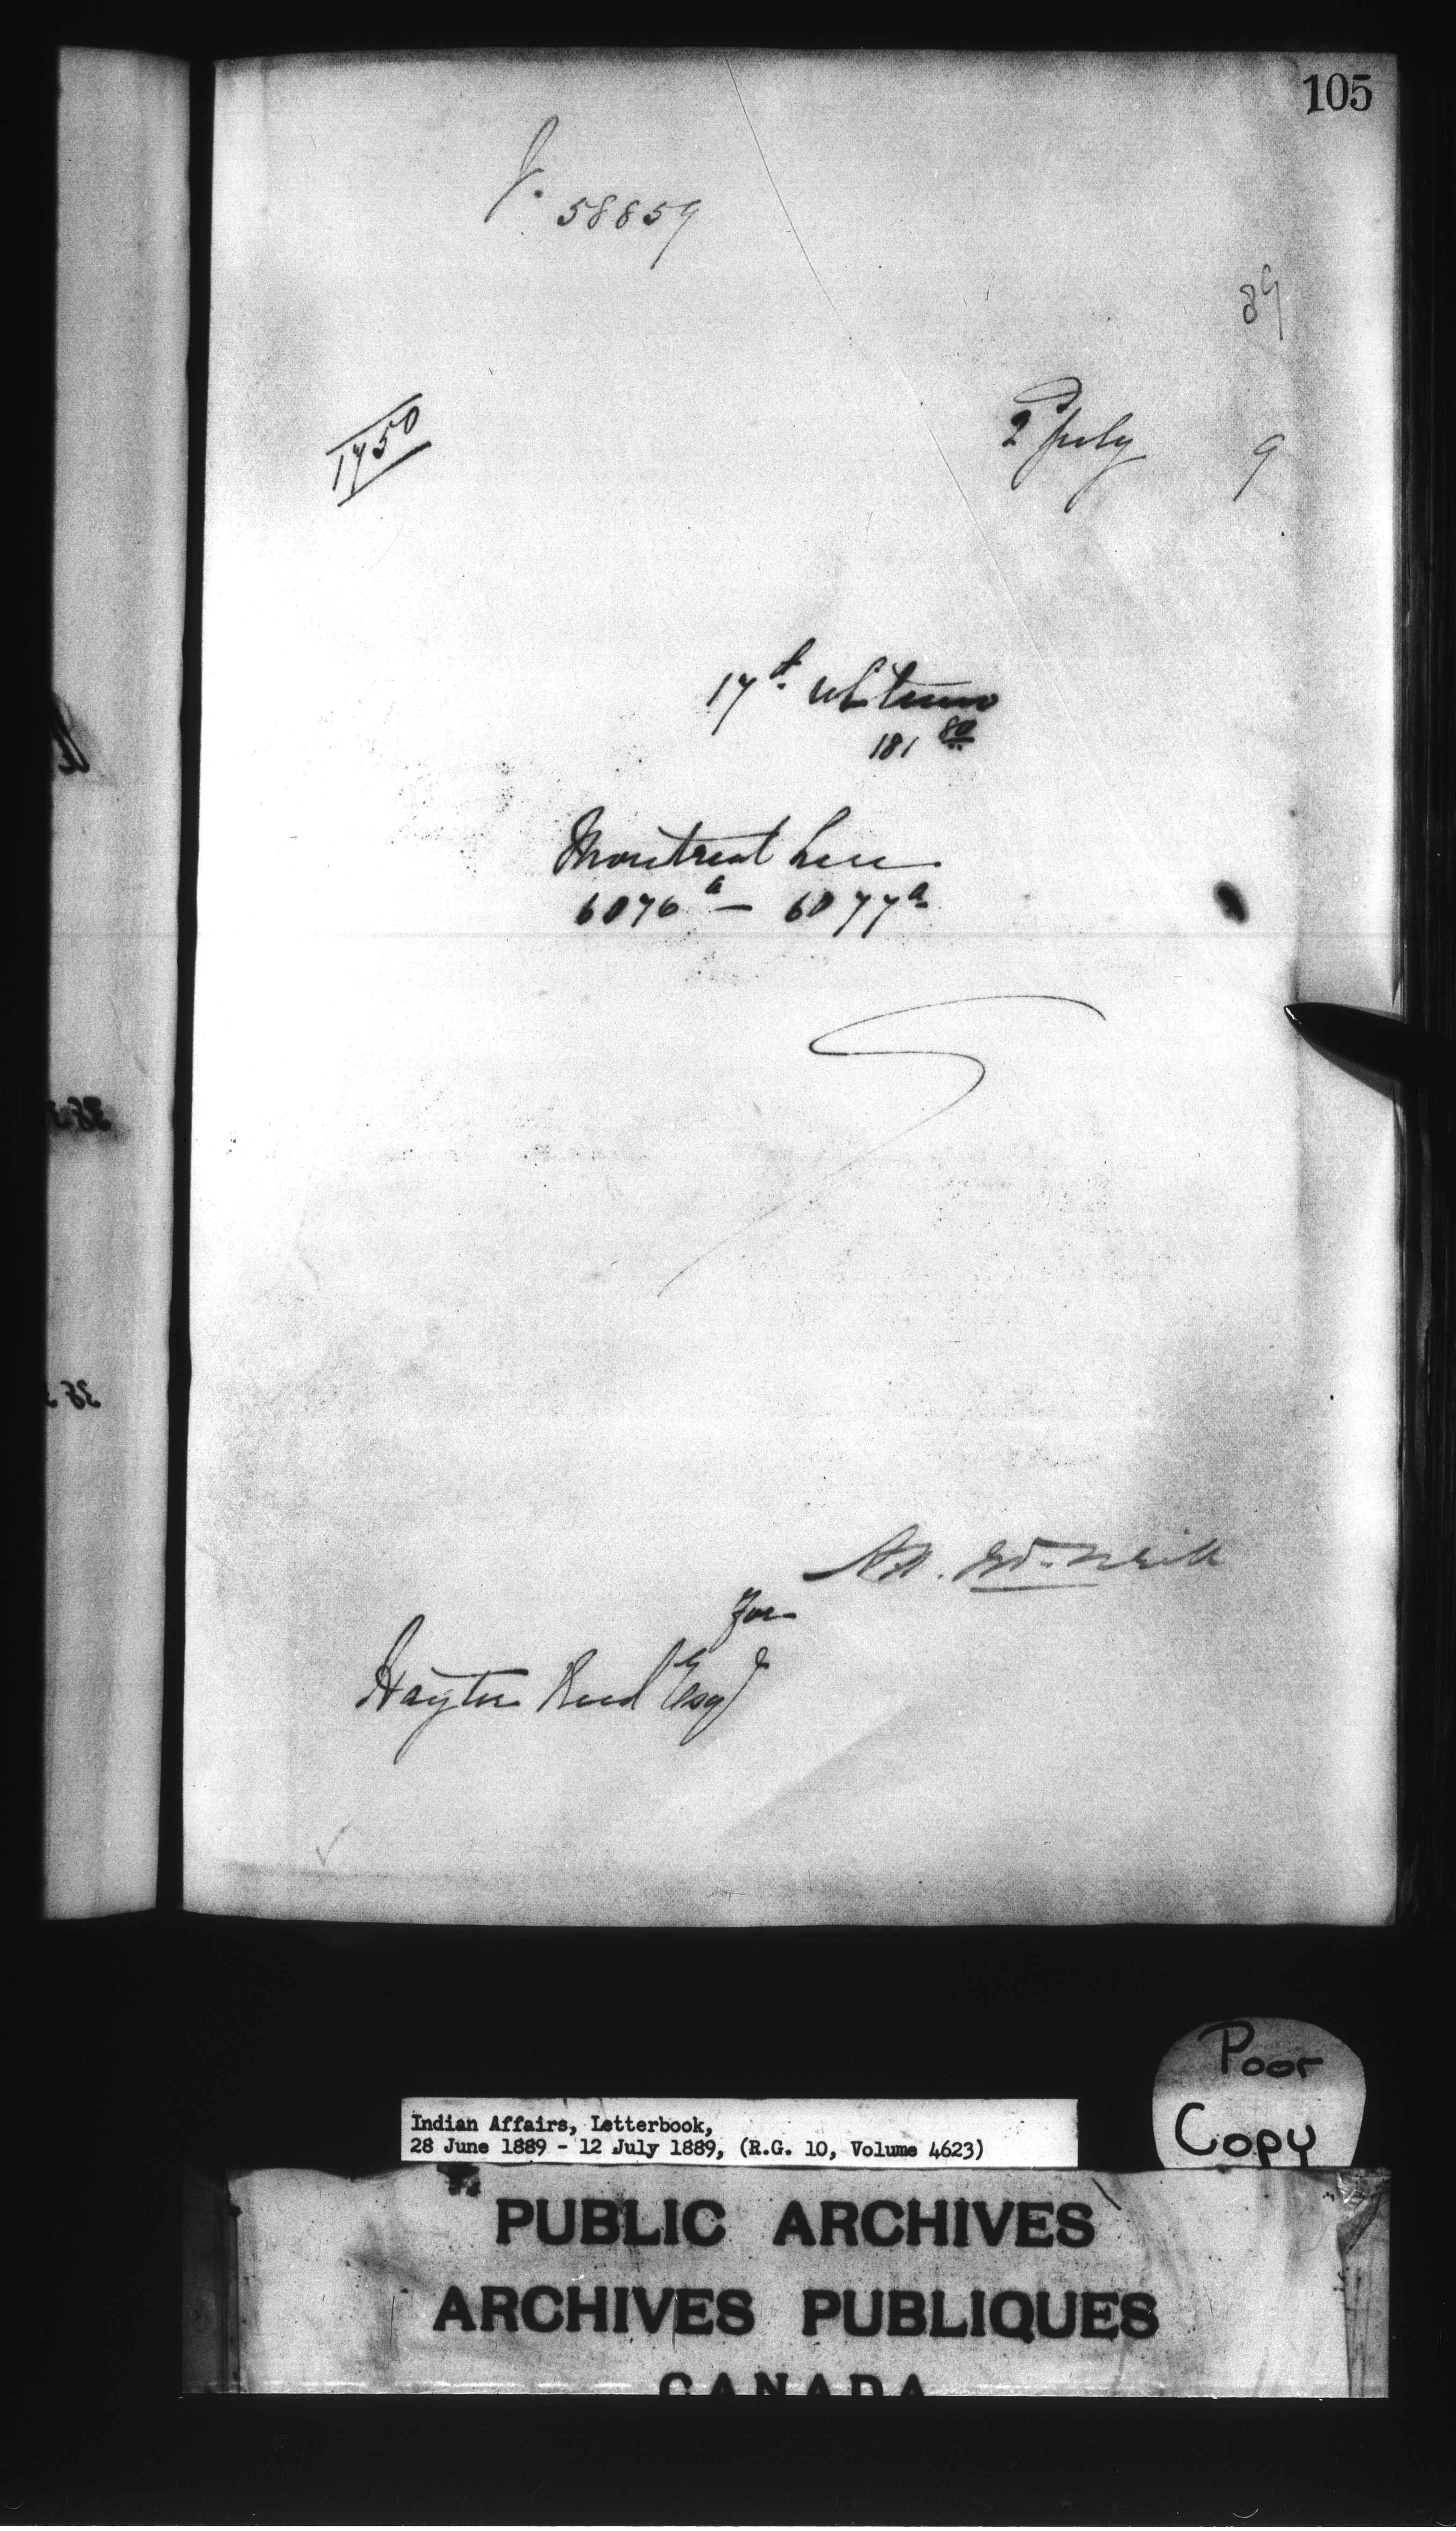 105
J. 58859
89
1750
2d July 9
17th ultimo
181 80
Montreal
6076a — 6077a
A.N. McNeill
For
Hayter Reed Esqr
Poor
Copy
Indian Affairs, Letterbook,
28 June 1889 - 12 July 1889, (R.G. 10, Volume 4623)
PUBLIC ARCHIVES
ARCHIVES PUBLIQUES
CANADA